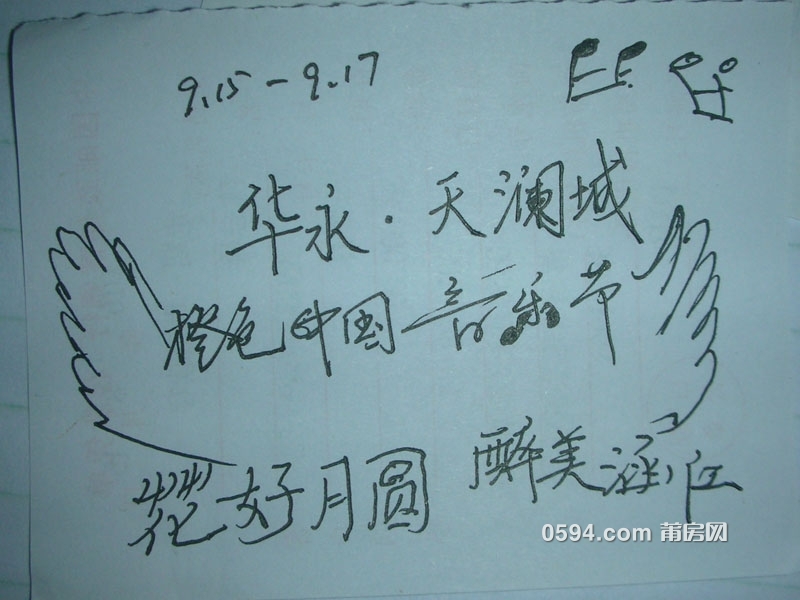 9.15-9.17
华永·天澜城
橙色中国音乐节
花好月圆 醉美涵江
0594.com 莆房网